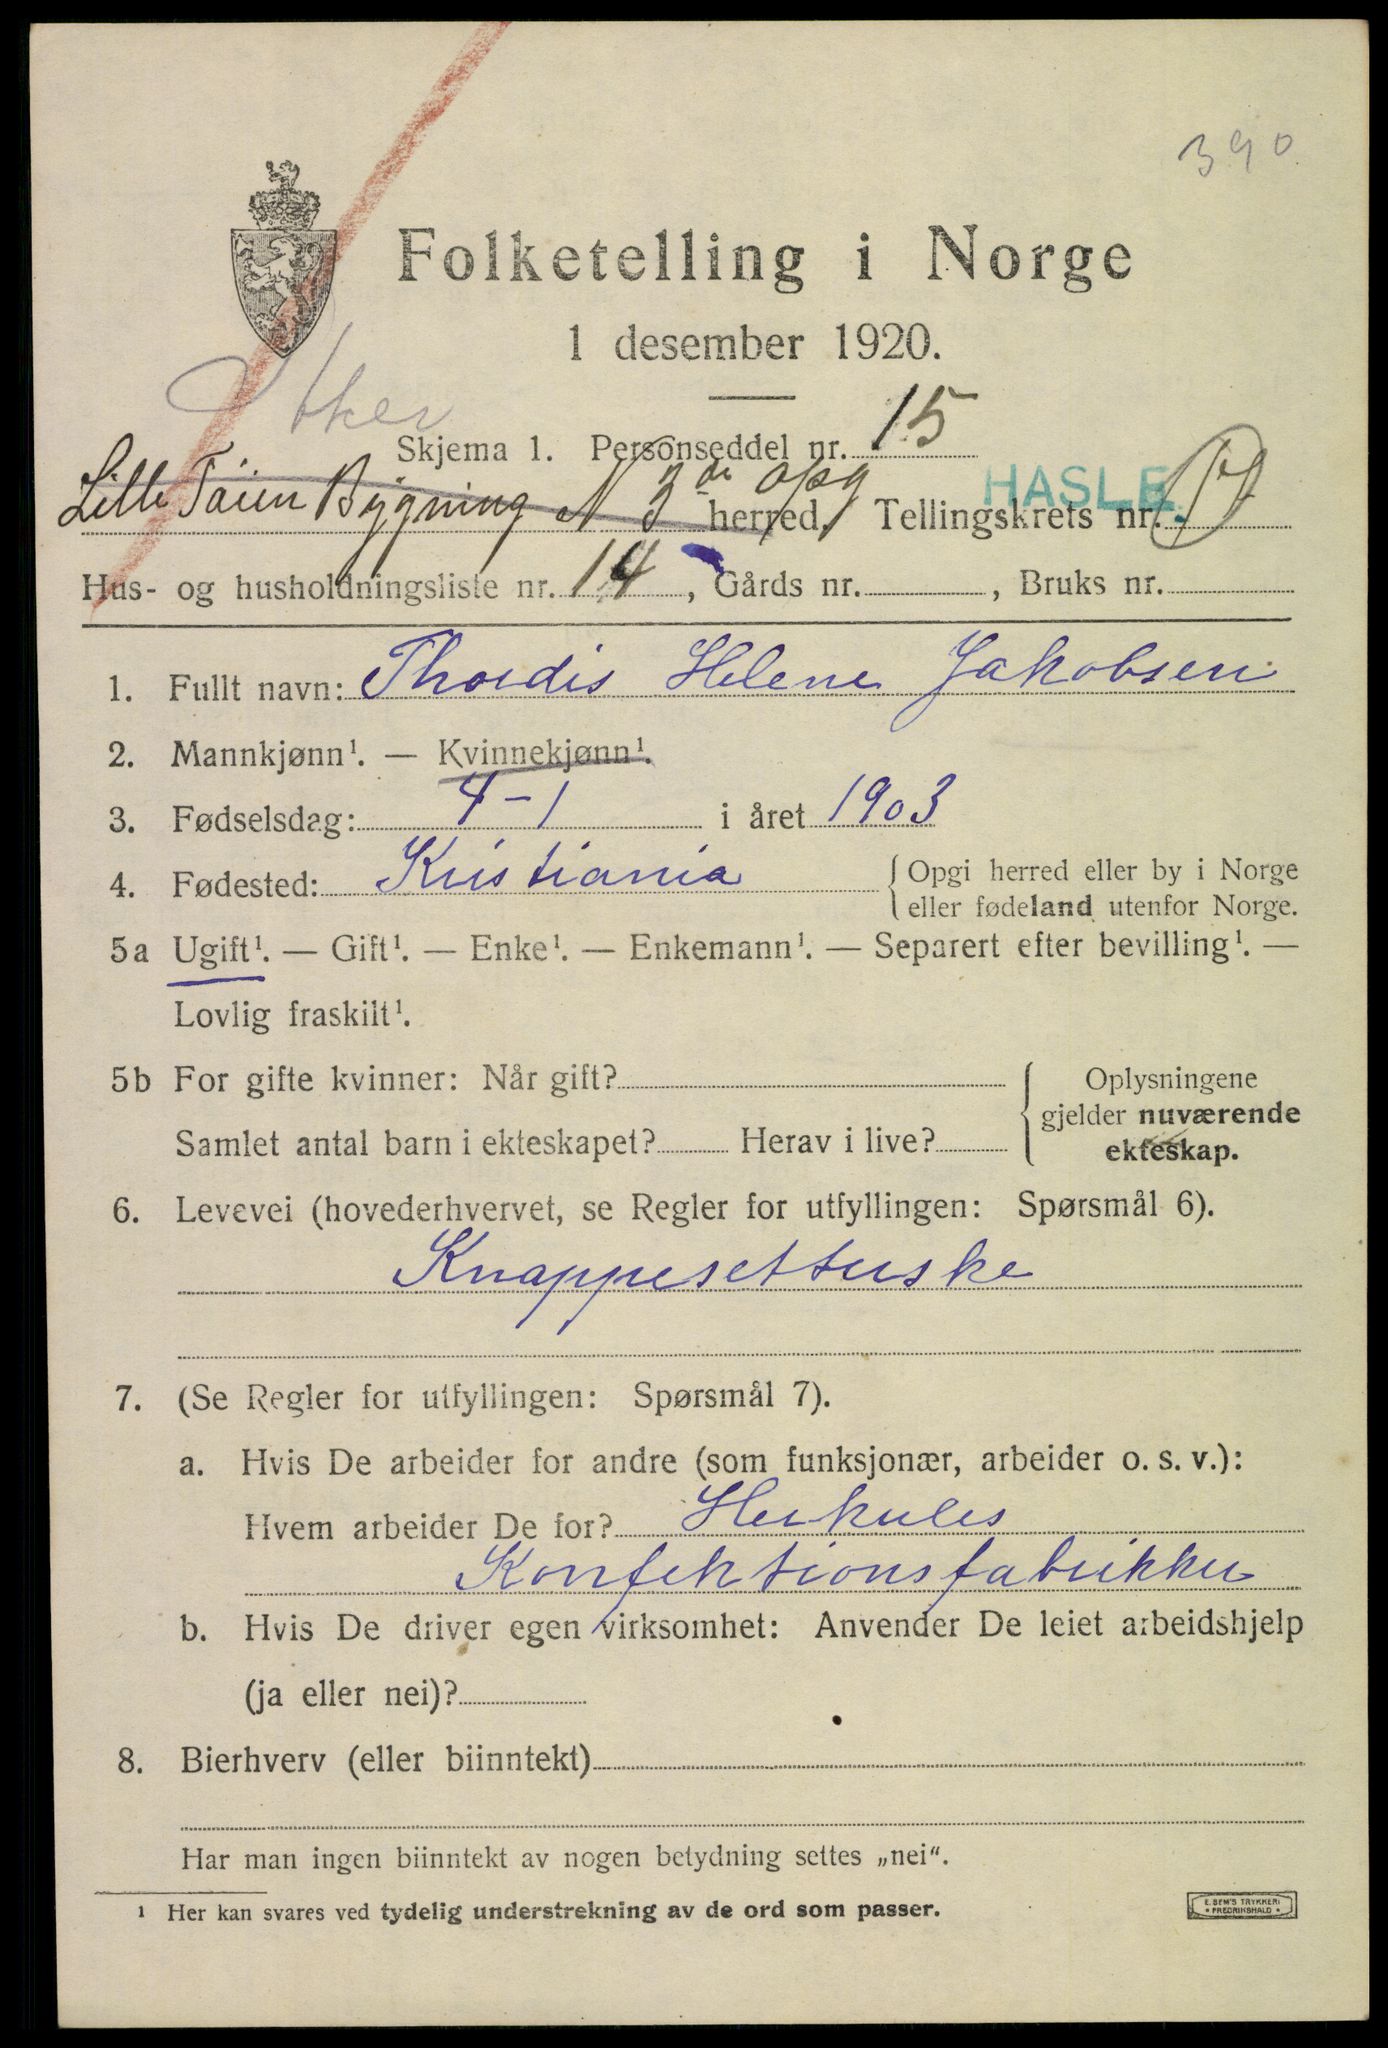 390
Folketelling i Norge
1 desember 1920.
Aker
Skjema 1. Personseddel nr. 15
Lille Töien Bygning N 3 de opg herred, Tellingskrets nr.
HASLE.
Hus- og husholdningsliste nr. 14, Gårds nr. , Bruks nr.
1. Fullt navn: Thordis Helene Jakobsen
2. Mannkjønn¹. — Kvinnekjønn¹.
3. Fødselsdag: 4-1 i året 1903
4. Fødested: Kristiania { Opgi herred eller by i Norge
eller fødeland utenfor Norge.
5a Ugift¹. — Gift¹. — Enke¹. — Enkemann¹. — Separert efter bevilling¹. —
Lovlig fraskilt¹.
5b For gifte kvinner: Når gift?
Samlet antal barn i ekteskapet? Herav i live?
{ Oplysningene
gjelder nuværende
ekteskap.
6. Levevei (hovederhvervet, se Regler for utfyllingen: Spørsmål 6).
Knappesetterske
7. (Se Regler for utfyllingen: Spørsmål 7).
a. Hvis De arbeider for andre (som funksjonær, arbeider o. s. v.):
Hvem arbeider De for? Herkules
Konfektionsfabrikker
b. Hvis De driver egen virksomhet: Anvender De leiet arbeidshjelp
(ja eller nei)?
8. Bierhverv (eller biinntekt)
Har man ingen biinntekt av nogen betydning settes „nei“.
¹ Her kan svares ved tydelig understrekning av de ord som passer.
E. SEM'S TRYKKERI
• FREDRIKSHALD •